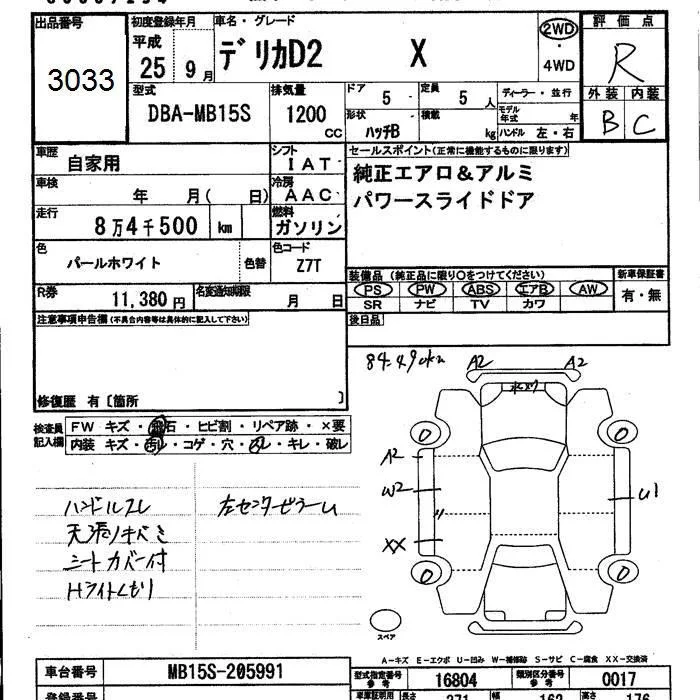 出品番号
3033
初度登録年月
平成
25 年 9 月
車名・グレード
デリカD2 X
2WD
・
4WD
評価点
R
外装 内装
B C
型式
DBA-MB15S
排気量
1200
CC
ドア
5 -
定員
5 人
ディーラー・並行
モデル年式 年
形状
ハッチB
積載
kg
ハンドル 左・右
車歴
自家用
シフト
IAT
セールスポイント(正常に機能するものに限ります)
純正エアロ&アルミ
パワースライドドア
車検
年 月( 日)
冷房
AAC
走行
8万4千500 km
燃料
ガソリン
色
パールホワイト
色替
色コード
Z7T
装備品(純正品に限り○をつけてください)
PS PW ABS エアB AW
SR ナビ TV カワ
新車保証書
有・無
R券
11,380 円
名変通知期限
月 日
後日品
注意事項申告欄(不具合内容等は具体的に記入して下さい)
修復歴 有〔箇所 〕
84490km
A2 A2
検査員記入欄
FW キズ・飛石・ヒビ割・リペア跡・×要
内装 キズ・汚レ・コゲ・穴・スレ・キレ・破レ
ハンドルスレ
シートカバー付
Hライトくもり
左センターピラーU
A2
W2
XX
U1
スペア
A-キズ E-エクボ U-凹み W-補修跡 S-サビ C-腐食 XX-交換済
車台番号
MB15S-205991
型式指定番号
参考
16804
類別区分番号
参考
0017